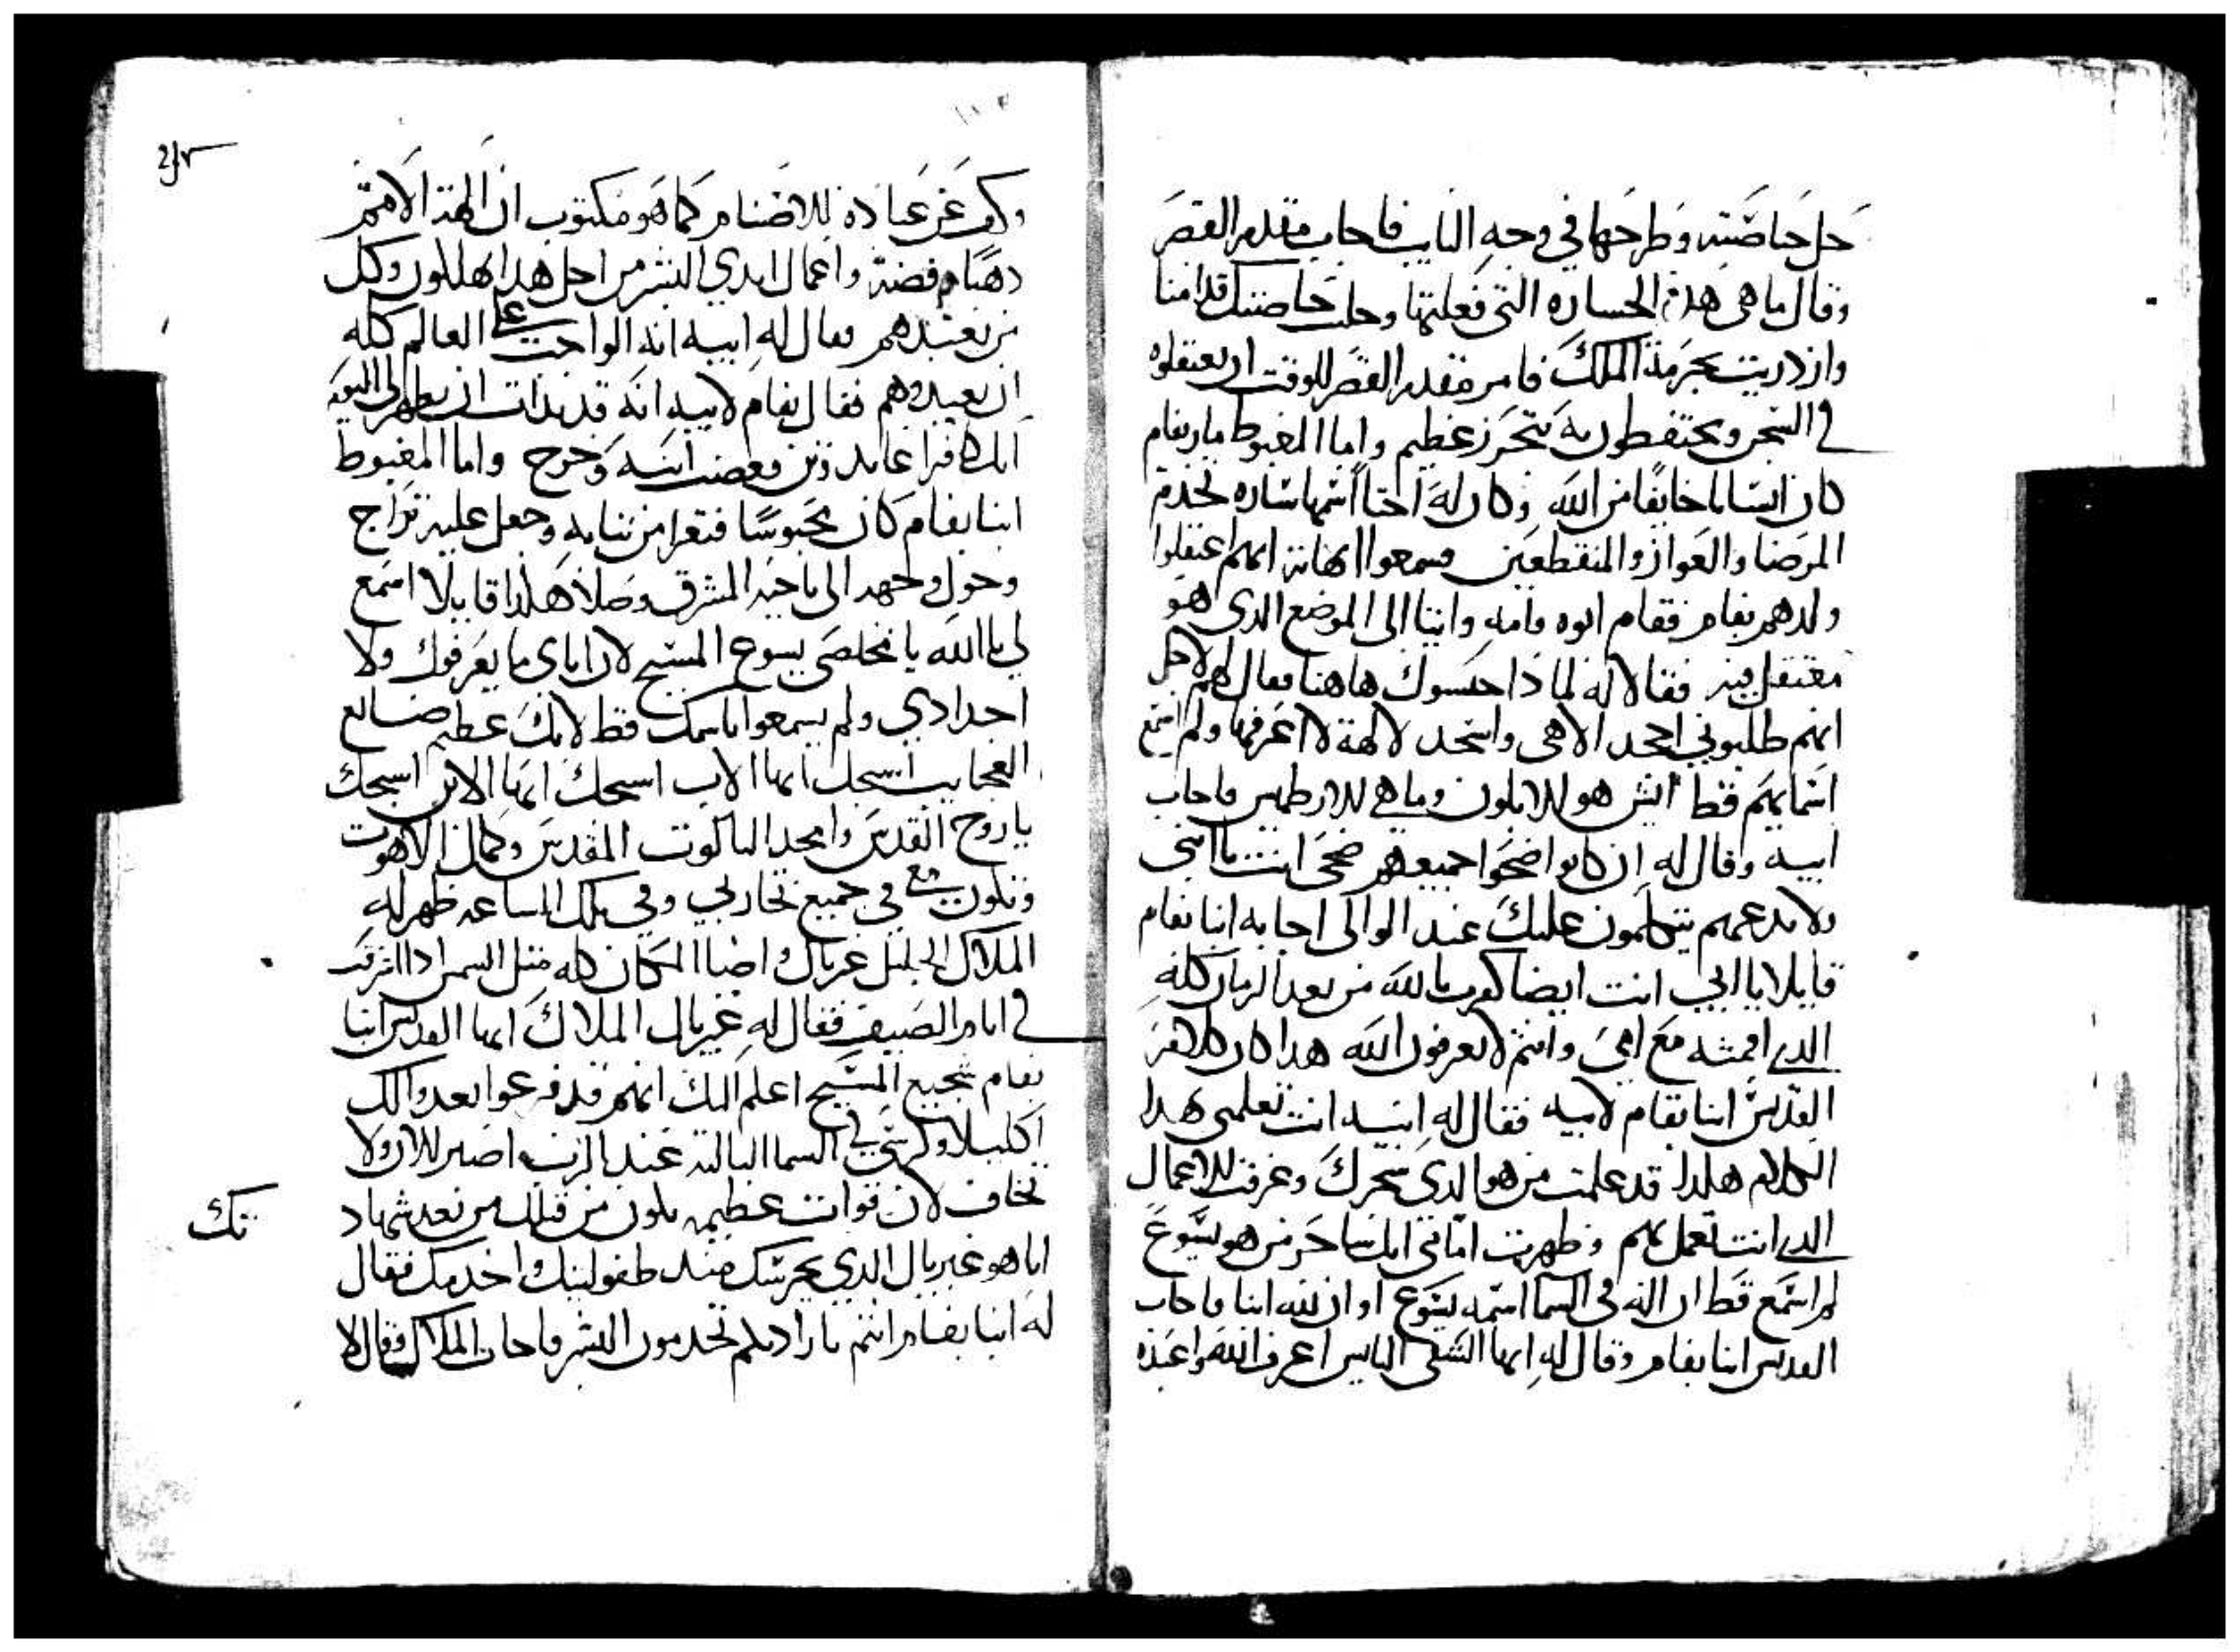 حل حاصته وطرحها في وجه النايب فاجاب مقدم القصر
وقال ما هي هده الجساره التي فعلتها وحلت حاصتك قدامنا
وازدريت بحرمة الملك فامر مقدم القصر للوقت ان يعتقلوه
في السجن ويحتفطون به بتحرز عظيم واما المغبوط مار بفام
كان انسانا خايفا من الله وكان له اختا اسمها ساره تخدم
المرضا والعواز والمنقطعين فسمعوا ابهاته انهم اعتقلوا
ولدهم بفام فقام ابوه وامه واتيا الى الموضع الدي هو
معتقل فيه فقالا له لماذا حبسوك هاهنا فقال لهم لاجل
انهم طلبوني اجحد الاهي واسجد لالهة لا اعرفها ولم اسمع
اسمايهم قط ايش هو للابلون وما هي للارطميس فاجاب
ابيه وقال له ان كانوا ضحوا جميعهم ضحى انت يا ابني
ولا تدعهم يتكلمون عليك عند الوالى اجابه انبا بفام
قايلا يا ابي انت ايضا كفرت بالله من بعد الزمان كله
الدي اقمته مع امي وانتم لا تعرفون الله هدا كان كلام
القديس انبا بفام لابيه فقال له ابيه انت تعلمى هدا
الكلام هكدا قد علمت من هو الدي سحرك وعرفت للاعمال
الدي انت تعمل بهم وظهرت امانتي انك ساحر من هو يسوع
لم اسمع قط ان الله في السما اسمه يسوع او ان لله ابنا فاجاب
القديس انبا بفام وقال له ايها الشقى البايس اعرف الله واعبده
وكف عن عباده للاصنام كما هو مكتوب ان الهة الامم
دهبا وفضة واعمال ايدي البشر من اجل هدا يهلكون وكل
من يعتبدهم فقال له ابيه انه الواجب على العالم كله
ان يعبدوهم فقال بفام لابيه انه قد بدات ان يظهر لي اليوم
انك كافرا عابد وثن فغضب ابيه وخرج واما المغبوط
انبا بفام كان محبوسا فتعرا من ثيابه وجعل عليه تراج
وحول وجهه الى ناحية المشرق وصلا هكدا قايلا اسمع
لي يا الله يا مخلصي يسوع المسيح لان اباي ما يعرفوك ولا
اجدادي ولم يسمعوا باسمك قط لانك عظيم صانع
العجايب اسبحك ايها الاب اسبحك ايها الابن اسبحك
يا روح القدس وامجد التالوت المقدس وكمال اللاهوت
وتكون معي في جميع تجاربي وفي تلك الساعه ظهر له
الملاك الجليل غبريال واضا المكان كله متل الشمس ادا اشرقت
في ايام الصيف فقال له غبريال الملاك ايها القديس انبا
بفام شجيع المسيح اعلم انك انهم قد فرغوا يعدوا لك
اكليلا وكرسي في السما التالته عند الرب اصبر للان ولا
تخاف لان قوات عظيمه تكون من قبلك من بعد شهاد
تك
انا هو غبريال الدي يحرسك منذ طفوليتك واخدمك فقال
له انبا بفام انتم بارادتكم تخدمون البشر فاجاب الملاك وقال لا